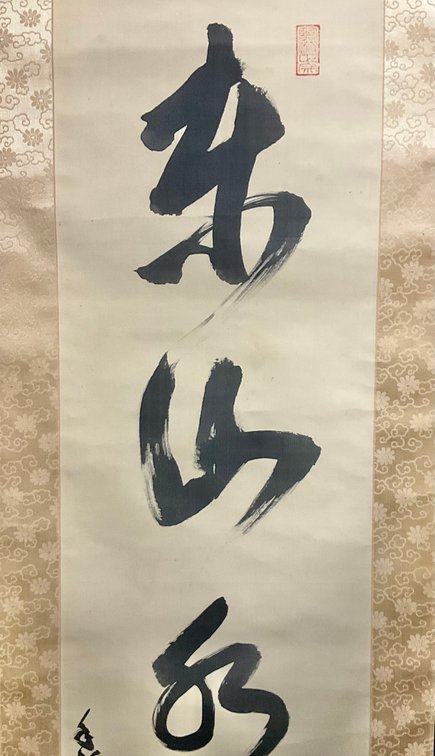 東山水